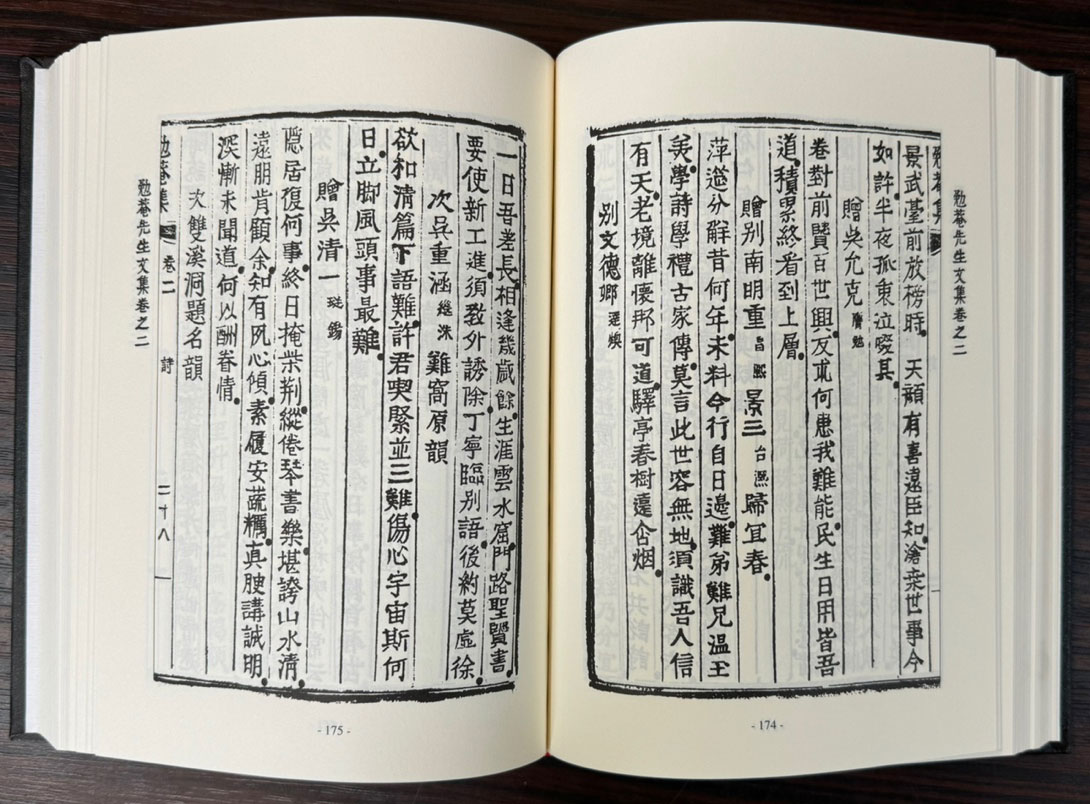 勉菴先生文集卷之二
勉菴集
景武臺前放榜時天顏有喜遠臣知滄桑世事今
如許半夜孤衷泣暌其
贈吳允克
卷對前賢百世興友朮何患我難能民生日用皆吾
道積累終看到上層
贈別南明重旨熙景三台熙歸宜春
萍蓬分解昔何年未料今行自日邊難弟難兄溫玉
美學詩學禮古家傳莫言此世容無地須識吾人信
有天老境離懷那可道驛亭春樹遠含烟
別文德卿
- 174 -
一日吾差長相逢幾歲餘生涯雲水窟門路聖賢書
要使新工進須教外誘除丁寧臨別語後約莫虛徐
次吳重涵繼洙難窩原韻
欲和清篇下語難許君喫緊並三難傷心宇宙斯何
日立脚風頭事最難
贈吳清一
隱居復何事終日掩柴荆縱倦琴書樂堪誇山水清
遠朋肯顧余知有夙心傾素履安蔬糲真腴講誠明
深慚未聞道何以酬眷情
次雙溪洞題名韻
勉菴集 卷二 詩 二十八
勉菴先生文集卷之二
- 175 -